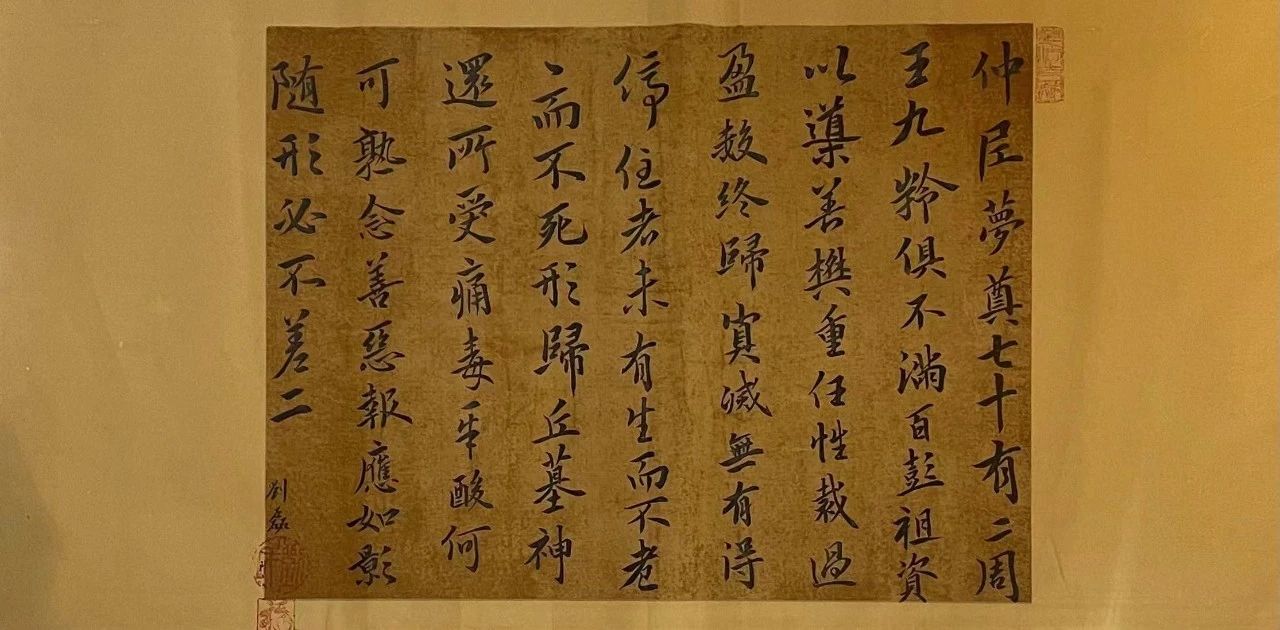 仲尼夢奠七十有二周
王九齡俱不滿百彭祖資
以導善樊重任性裁過
盈數終歸冥滅無有得
停住者未有生而不老
老而不死形歸丘墓神
還所受痛毒辛酸何
可熟念善惡報應如影
随形必不差二
劉磊